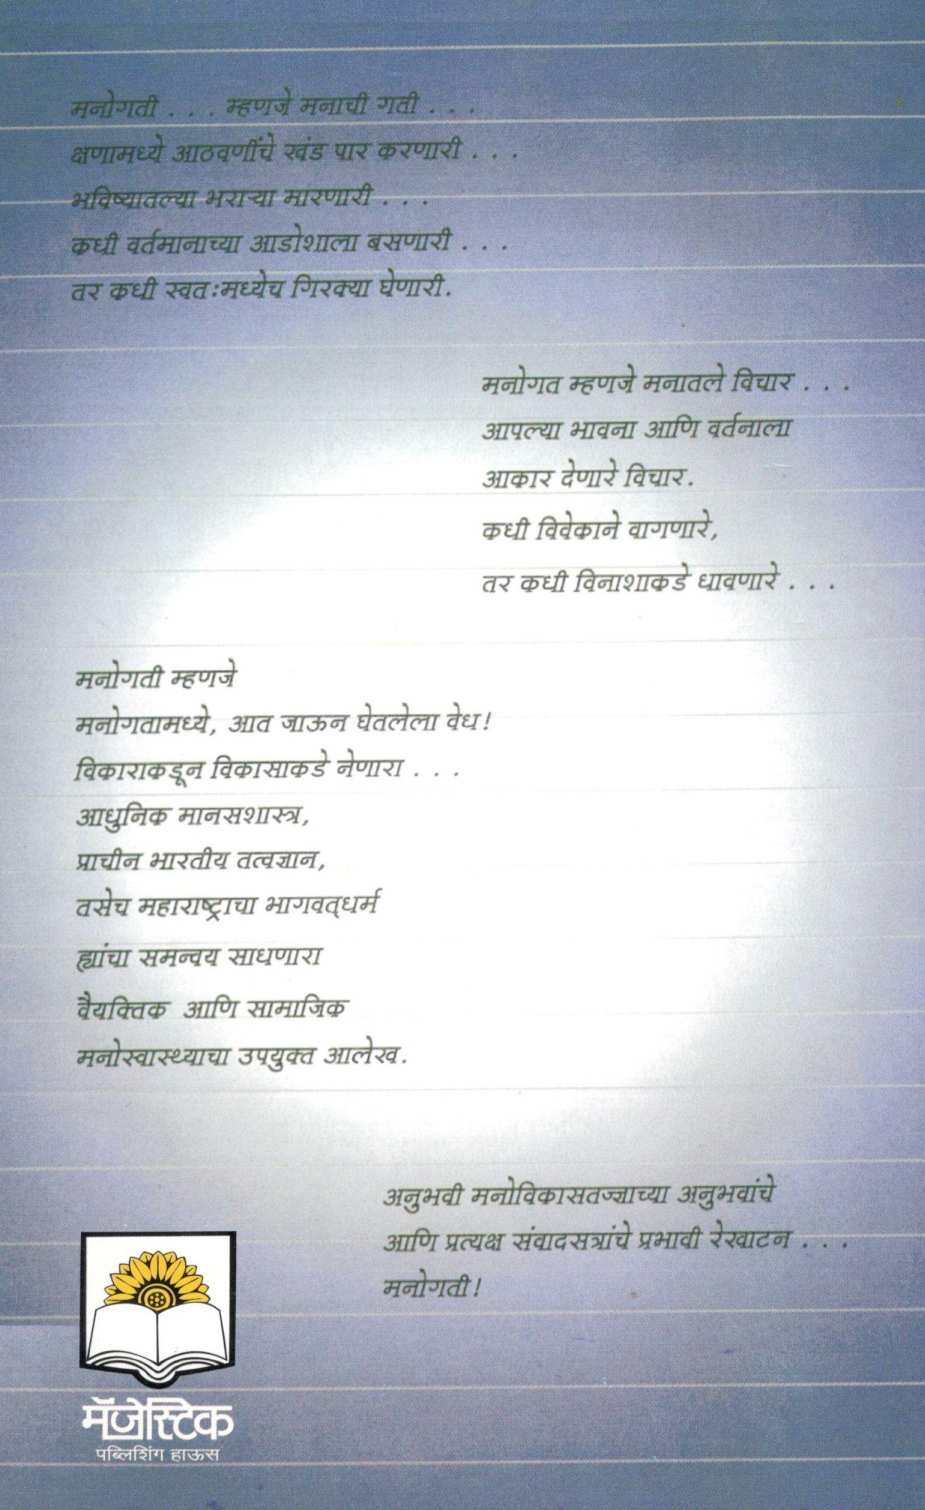 मनोगती . . . म्हणजे मनाची गती . . .
क्षणामध्ये आठवणींचे खंड पार करणारी . . .
भविष्यातल्या भराऱ्या मारणारी . . .
कधी वर्तमानाच्या आडोशाला बसणारी . . .
तर कधी स्वतःमध्येच गिरक्या घेणारी.
मनोगत म्हणजे मनातले विचार . . .
आपल्या भावना आणि वर्तनाला
आकार देणारे विचार.
कधी विवेकाने वागणारे,
तर कधी विनाशाकडे धावणारे . . .
मनोगती म्हणजे
मनोगतामध्ये, आत जाऊन घेतलेला वेध!
विकाराकडून विकासाकडे नेणारा . . .
आधुनिक मानसशास्त्र,
प्राचीन भारतीय तत्वज्ञान,
तसेच महाराष्ट्राचा भागवत्‌धर्म
ह्यांचा समन्वय साधणारा
वैयक्तिक आणि सामाजिक
मनोस्वास्थ्याचा उपयुक्त आलेख.
अनुभवी मनोविकासतज्ज्ञाच्या अनुभवांचे
आणि प्रत्यक्ष संवादसत्रांचे प्रभावी रेखाटन . . .
मनोगती!
मॅजेस्टिक
पब्लिशिंग हाऊस